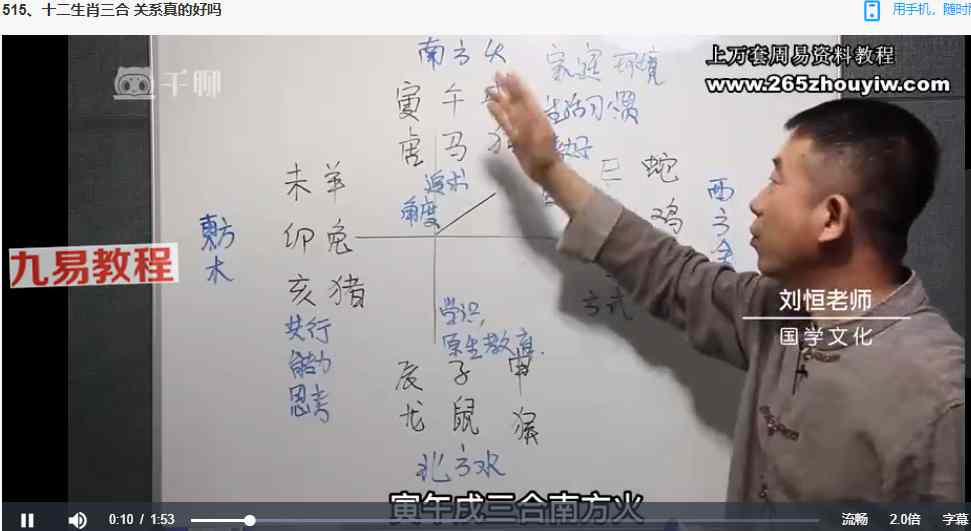 515、十二生肖三合 关系真的好吗
用手机，随时
千聊
上万套周易资料教程
www.265zhouyiw.com
九易教程
南方火
家庭环境
寅 午
生活习惯
虎 马
未羊
追求
角度
巳 蛇
鸡
西方金
東方木
卯兔
亥猪
方式
共行
能力
思考
学识,
原生教育.
辰 子 申
龙 鼠 猴
北方水
刘恒老师
国学文化
寅午戌三合南方火
0:10 / 1:53
流畅
2.0倍
字幕